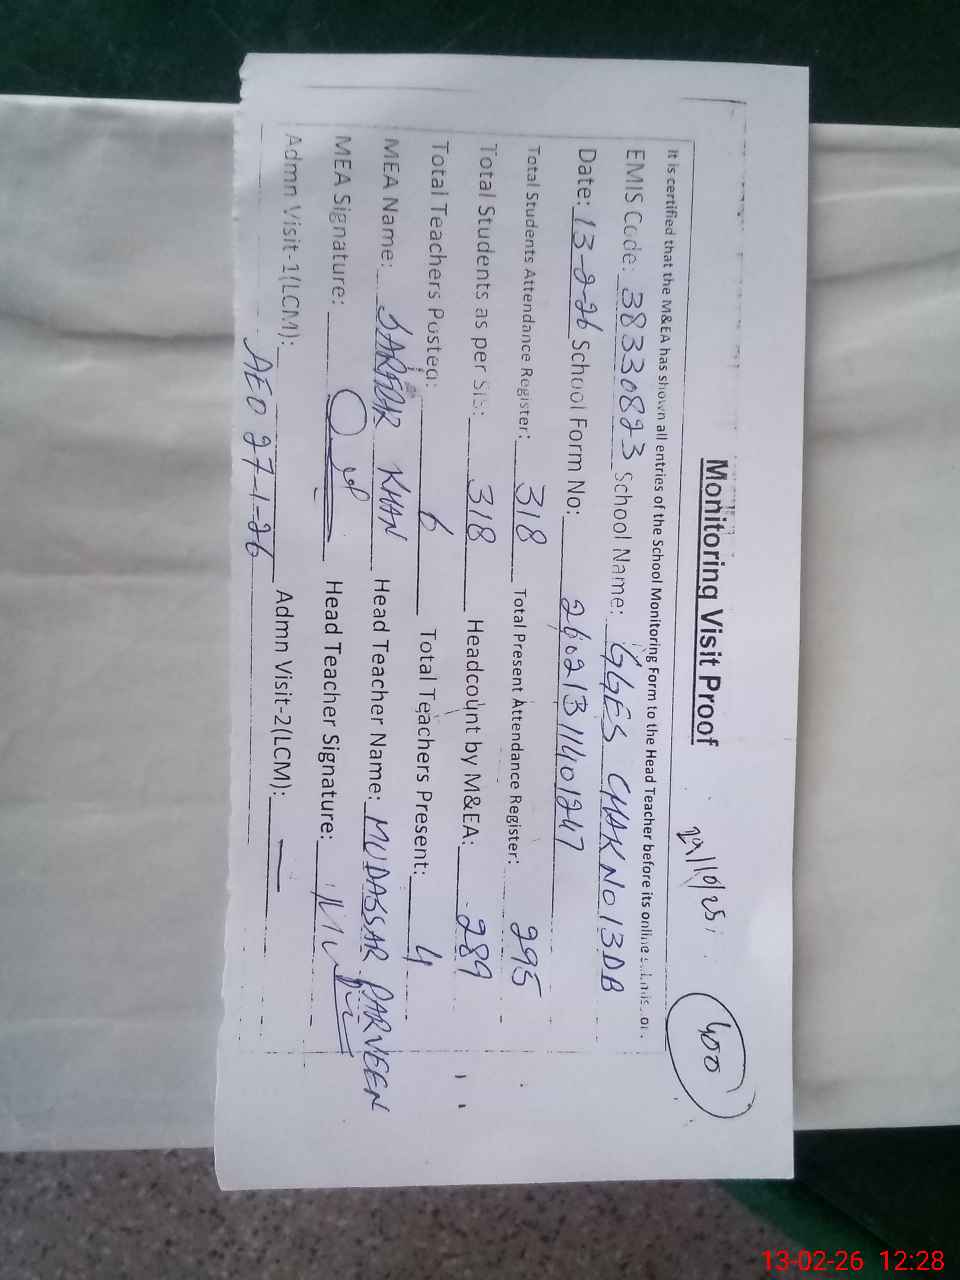 29/10/25
400
Monitoring Visit Proof
It is certified that the M&EA has shown all entries of the School Monitoring Form to the Head Teacher before its online submission.
EMIS Code: 38330823 School Name: GGES CHAK NO 13DB
Date: 13-2-26 School Form No: 26021311401247
Total Students Attendance Register: 318 Total Present Attendance Register: 295
Total Students as per SIS: 318 Headcount by M&EA: 289
Total Teachers Posted: 6 Total Teachers Present: 4
MEA Name: SARFRAZ KHAN Head Teacher Name: MUDASSAR PARVEEN
MEA Signature: Head Teacher Signature:
Admn Visit-1(LCM): Admn Visit-2(LCM): —
AEO 27-1-26
13-02-26 12:28